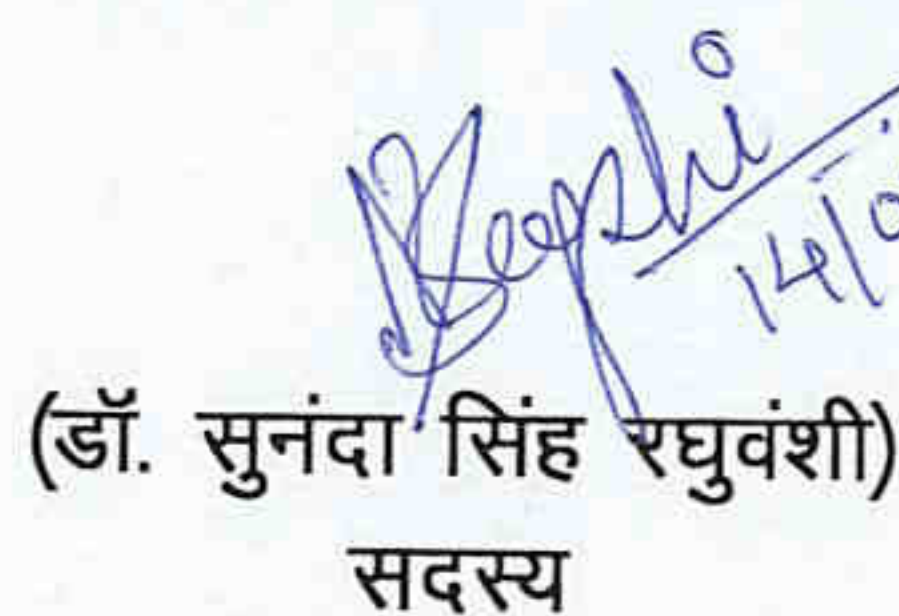 14/0
(डॉ. सुनंदा सिंह रघुवंशी)
सदस्य